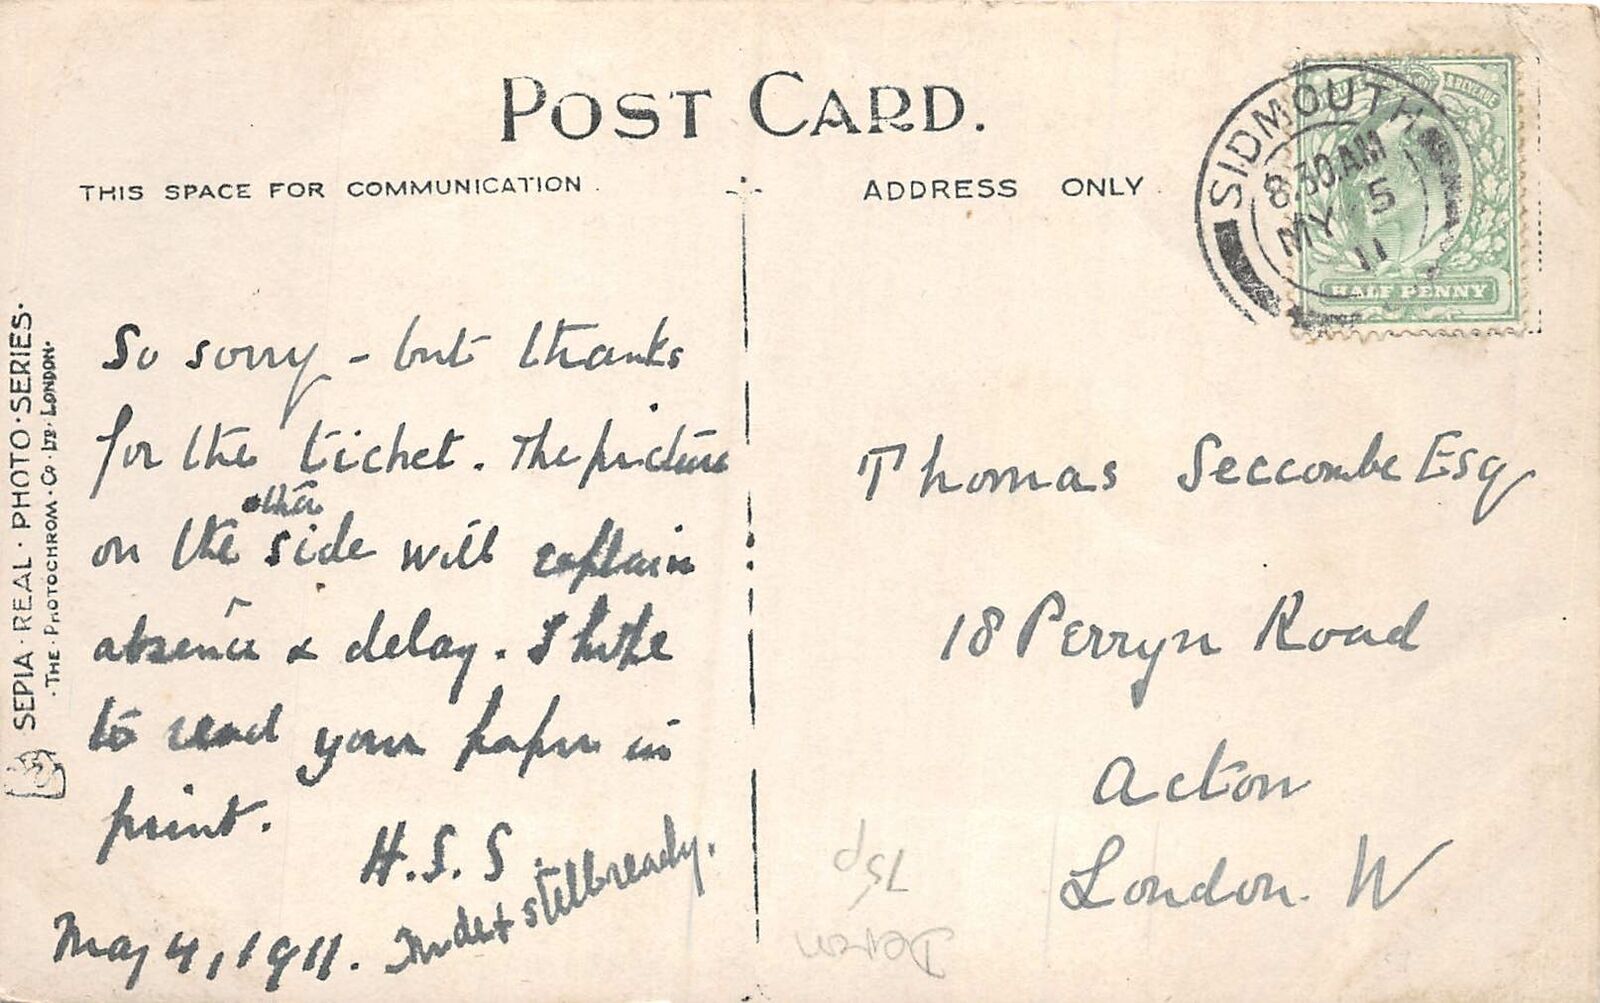 POST CARD.
THIS SPACE FOR COMMUNICATION.
ADDRESS ONLY.
SIDMOUTH
8.30 AM
MY 5
11
& REVENUE
HALF PENNY
SEPIA·REAL·PHOTO·SERIES·
·THE·PHOTOCHROM·Co·LTD·LONDON·
So sorry - but thanks
for the ticket. The picture
on the other side will explain
absence & delay. I hope
to read your paper in
print.
H.S.S
May 4, 1911.
Index still ready.
Thomas Seccombe Esq
18 Perryn Road
Acton
London. W
75p
Devon